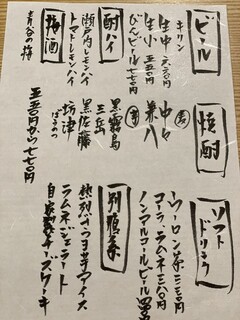 ビール
キリン
生中 六六〇円
生小 五五〇円
びんビール 七七〇円
酎ハイ
瀬戸内レモンハイ
トマトレモンハイ
梅酒
青谷の梅
五五〇円から七七〇円
焼酎
麦
中々
兼八
芋
黒霧島
三岳
黒佐藤
坊津
ソフトドリンク
ウーロン茶 三三〇円
コーラ・ラムネ 三八〇円
ノンアルコールビール
別腹系
熱烈パクヨーグルトアイス
ラムネジェラート
自家製チーズケーキ